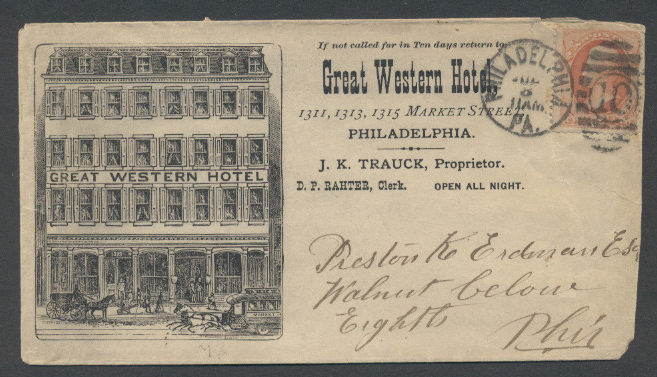 If not called for in Ten days return to
Great Western Hotel,
1311, 1313, 1315 MARKET STREET
PHILADELPHIA.
J. K. TRAUCK, Proprietor.
D. P. RAHTER, Clerk. OPEN ALL NIGHT.
GREAT WESTERN HOTEL
PHILADELPHIA
8
11 AM
PA.
10
Preston K Erdman Esq
Walnut below
Eighth
Phila